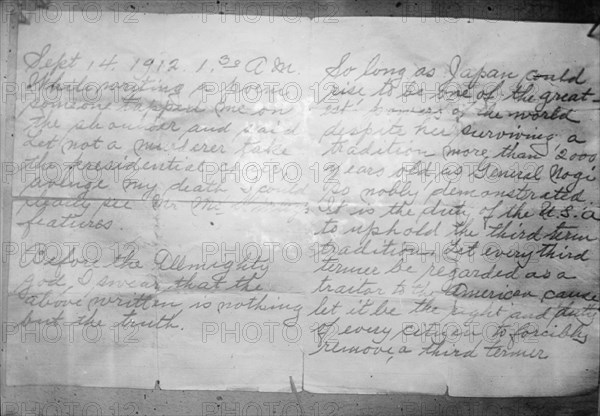 Sept 14. 1912. 1.30 A.M.
While writing a poem
someone tapped me on
the shoulder and said
Let not a murderer take
the presidential chair
avenge my death I could
plainly see Mr Mc
features.
Before the Allmighty
god, I swear, that the
above written is nothing
but the truth.
So long as Japan could
rise to be one of the great-
est powers of the world
despite her surviving a
tradition more than 2000
years old as General Nogi
so nobly demonstrated
it is the duty of the U.S.A
to uphold the third term
tradition. Let every third
termer be regarded as a
traitor to the American cause
let it be the right and duty
of every citizen to forcibly
remove a third termer